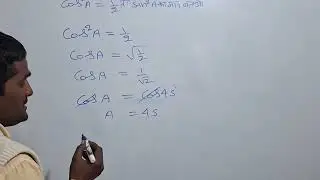 Cos²A = 1/2
Cos²A = 1/2
Cos A = √1/2
Cos A = 1/√2
Cos A = Cos 45
A = 45